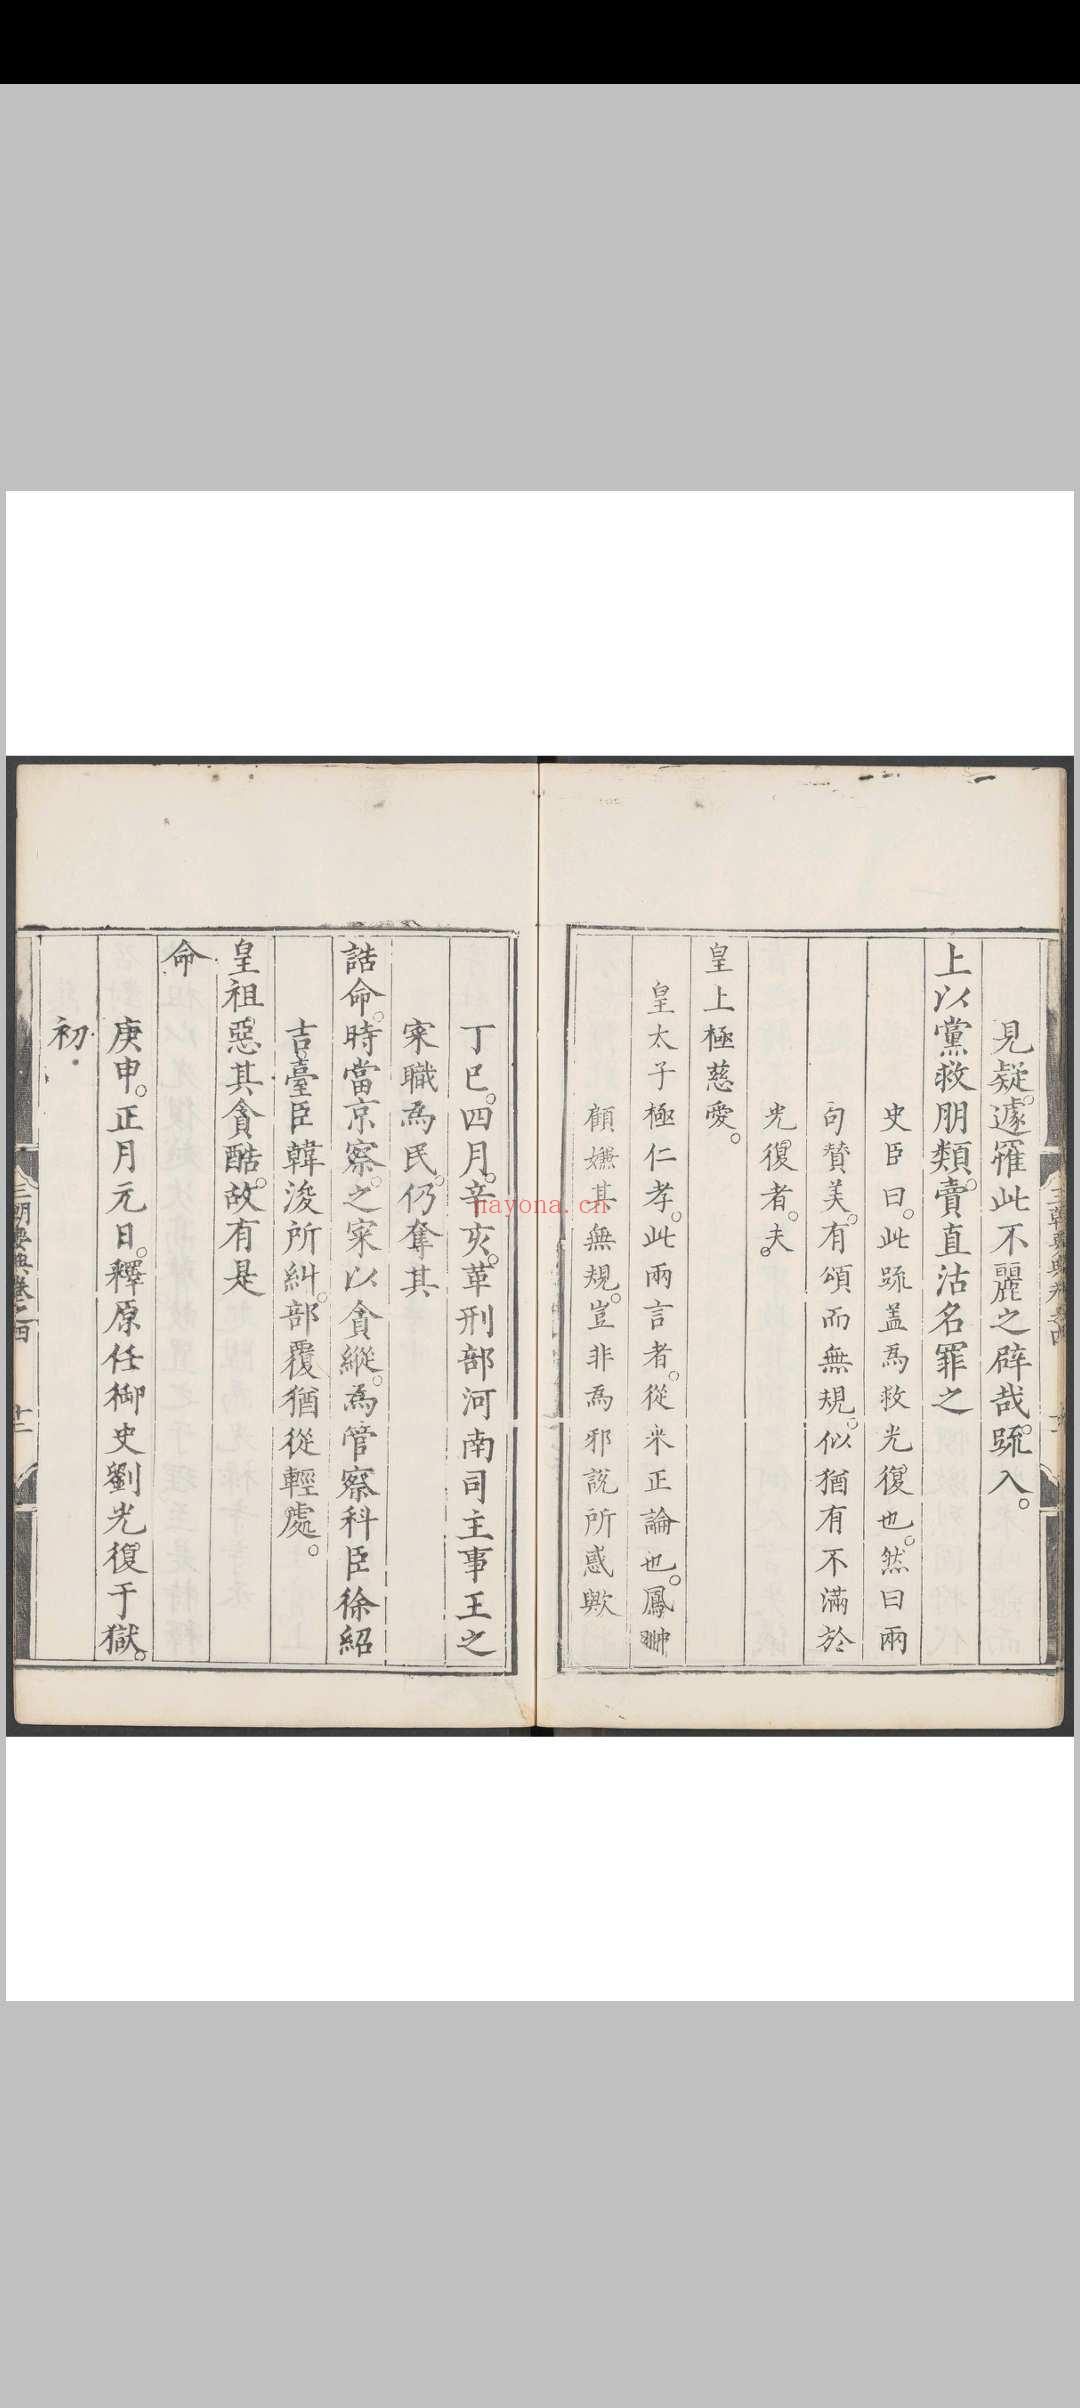 見疑遽罹此不麗之辟哉疏入
上以黨救朋類賣直沽名罪之
史臣曰此疏盖為救光復也然曰兩
句贊美有頌而無規似猶有不滿於
光復者夫
皇上極慈愛
皇太子極仁孝此兩言者從来正論也鳳翀
顧嫌其無規豈非為邪說所惑歟
丁巳四月辛亥革刑部河南司主事王之
寀職為民仍奪其
誥命時當京察之寀以貪縱為管察科臣徐紹
吉臺臣韓浚所糾部覆猶從輕處
皇祖惡其貪酷故有是
命
庚申正月元日釋原任御史劉光復于獄
初
三朝要典卷之四
十二
nayona.cn